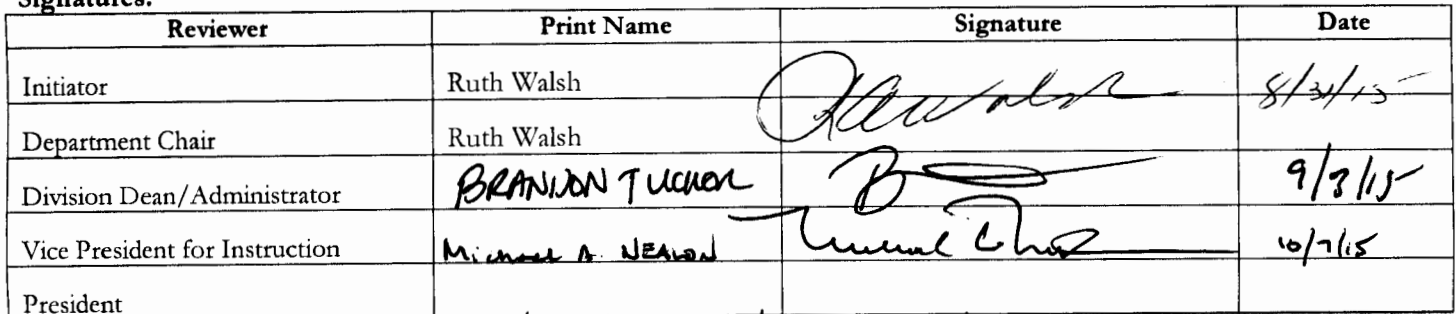 Signatures:
Reviewer Print Name Signature Date
Initiator Ruth Walsh RAWalsh 8/31/15
Department Chair Ruth Walsh
Division Dean/Administrator BRANDON TUCKER 9/3/15
Vice President for Instruction Michael A. NEALON 10/7/15
President